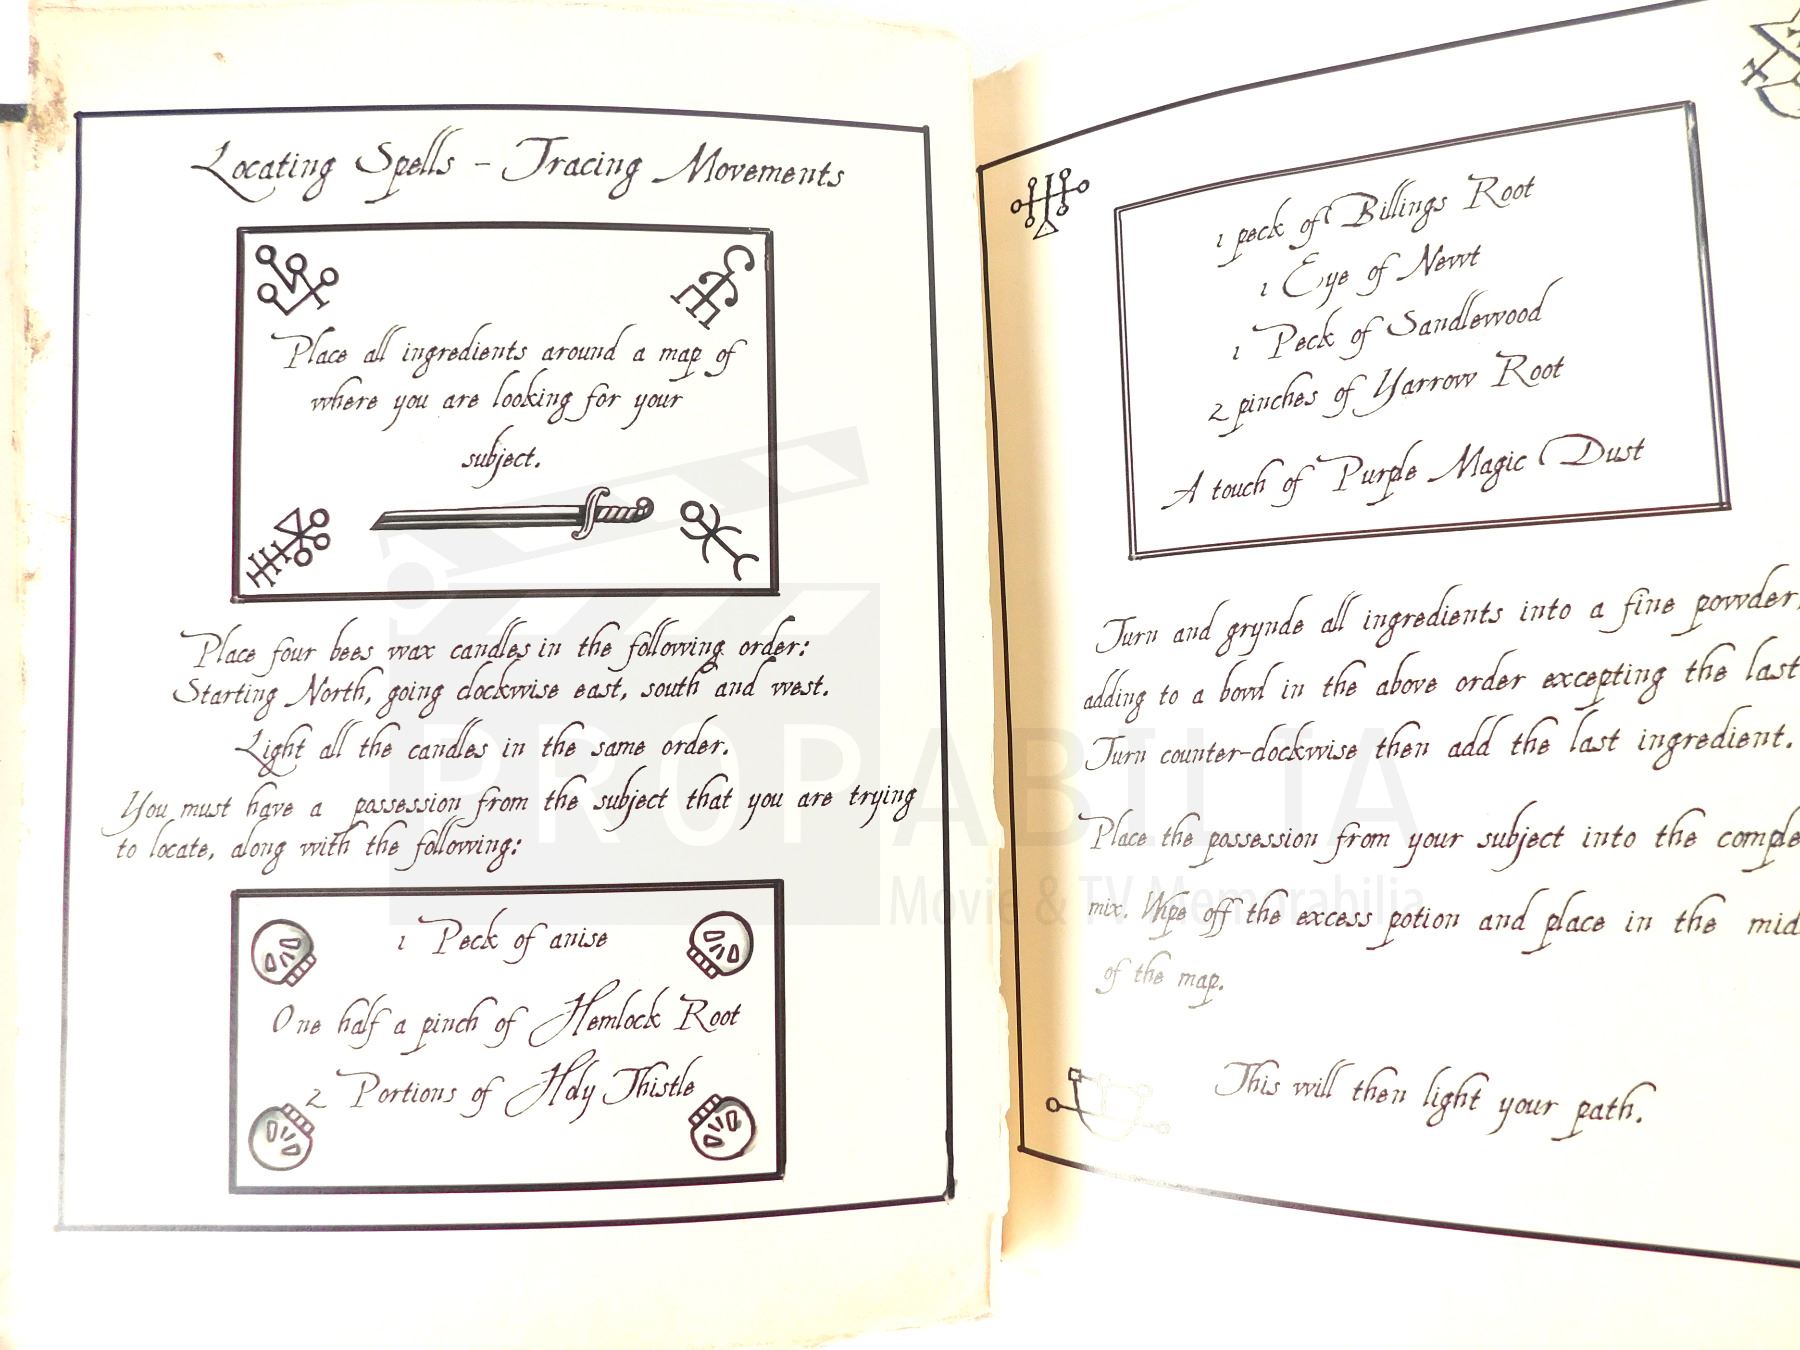 Locating Spells - Tracing Movements
Place all ingredients around a map of
where you are looking for your
subject.
Place four bees wax candles in the following order:
Starting North, going clockwise east, south and west.
Light all the candles in the same order.
You must have a possession from the subject that you are trying
to locate, along with the following:
1 Peck of anise
One half a pinch of Hemlock Root
2 Portions of Holy Thistle
1 peck of Billings Root
1 Eye of Newt
1 Peck of Sandlewood
2 pinches of Yarrow Root
A touch of Purple Magic Dust
Turn and grynde all ingredients into a fine powder,
adding to a bowl in the above order excepting the last
Turn counter-clockwise then add the last ingredient.
Place the possession from your subject into the comple
mix. Wipe off the excess potion and place in the mid
of the map.
This will then light your path.
PROPABILIA
Movie & TV Memorabilia